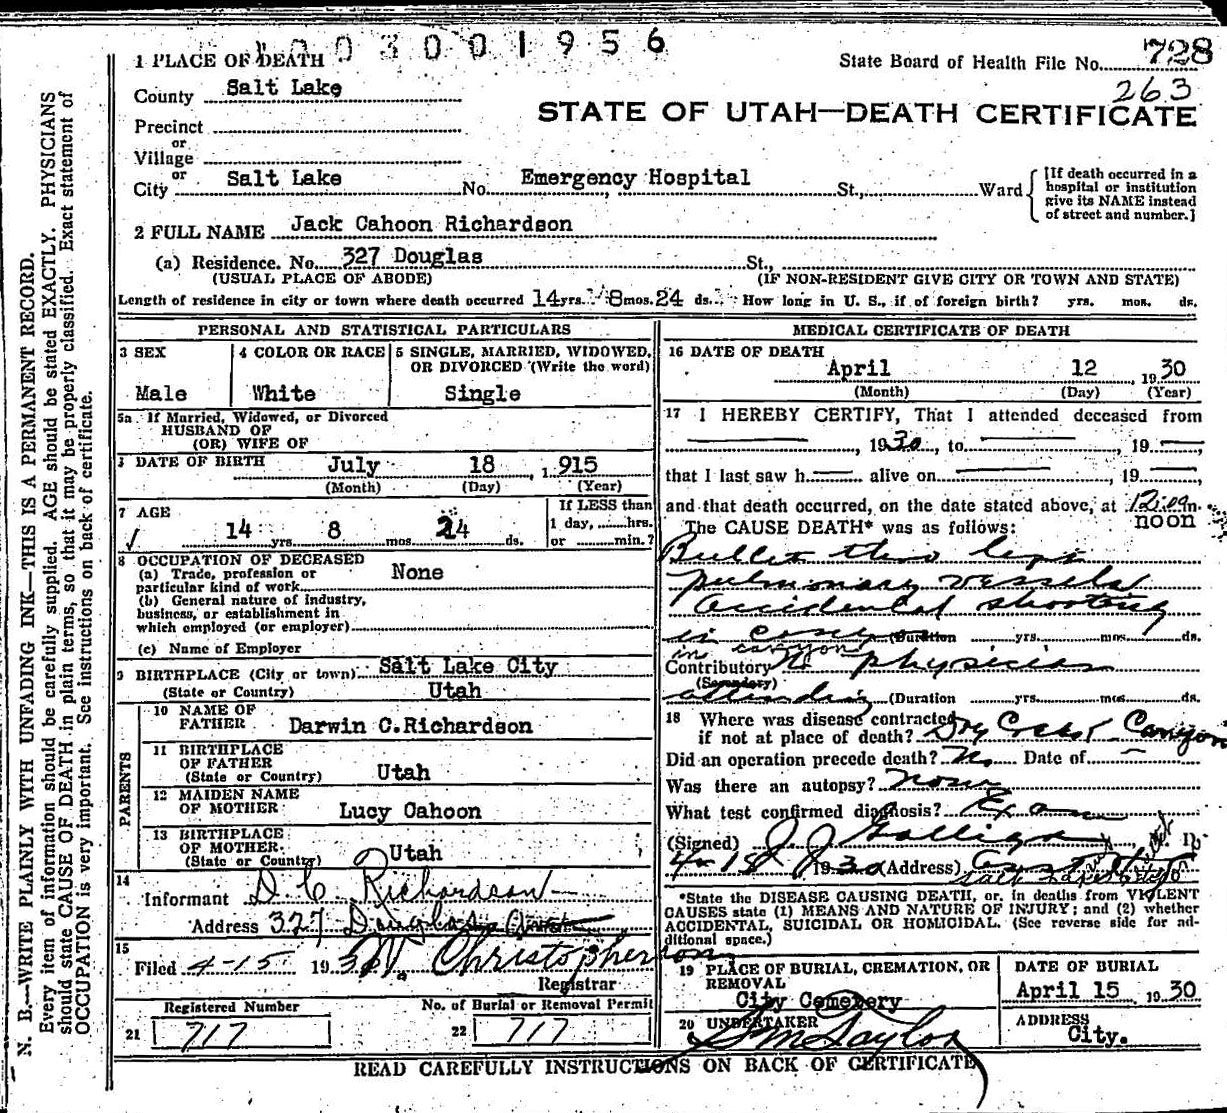 003001956
State Board of Health File No. 728
263
STATE OF UTAH—DEATH CERTIFICATE
1 PLACE OF DEATH
County Salt Lake
Precinct
or
Village
or
City Salt Lake No. Emergency Hospital St., Ward
[If death occurred in a
hospital or institution
give its NAME instead
of street and number.]
2 FULL NAME Jack Cahoon Richardson
(a) Residence. No. 327 Douglas St.,
(USUAL PLACE OF ABODE) (IF NON-RESIDENT GIVE CITY OR TOWN AND STATE)
Length of residence in city or town where death occurred 14 yrs. 8 mos. 24 ds. How long in U. S., if of foreign birth? yrs. mos. ds.
PERSONAL AND STATISTICAL PARTICULARS
3 SEX
Male
4 COLOR OR RACE
White
5 SINGLE, MARRIED, WIDOWED,
OR DIVORCED (Write the word)
Single
5a If Married, Widowed, or Divorced
HUSBAND OF
(OR) WIFE OF
DATE OF BIRTH July 18, 1915
(Month) (Day) (Year)
7 AGE
14 yrs. 8 mos. 24 ds.
If LESS than
1 day, hrs.
or min.?
8 OCCUPATION OF DECEASED
(a) Trade, profession or
particular kind of work None
(b) General nature of industry,
business, or establishment in
which employed (or employer)
(c) Name of Employer
9 BIRTHPLACE (City or town) Salt Lake City
(State or Country) Utah
PARENTS
10 NAME OF
FATHER Darwin C. Richardson
11 BIRTHPLACE
OF FATHER
(State or Country) Utah
12 MAIDEN NAME
OF MOTHER Lucy Cahoon
13 BIRTHPLACE
OF MOTHER
(State or Country) Utah
14
Informant D. C. Richardson
Address 327 Douglas
15
Filed 4-15 1930 Christopherson
Registrar
Registered Number
21 717
No. of Burial or Removal Permit
22 717
MEDICAL CERTIFICATE OF DEATH
16 DATE OF DEATH
April 12, 1930
(Month) (Day) (Year)
17 I HEREBY CERTIFY, That I attended deceased from
, 1930, to , 19
that I last saw h alive on , 19
and that death occurred, on the date stated above, at 12:00 m.
noon
The CAUSE DEATH* was as follows:
Bullet thru left
pulmonary vessels
accidental shooting
in (Duration yrs. mos. ds.
in canyon
Contributory No physician
(Secondary)
attending (Duration yrs. mos. ds.
18 Where was disease contracted
if not at place of death? Dry Canyon
Did an operation precede death? No Date of —
Was there an autopsy? None
What test confirmed diagnosis? Exam
(Signed) J. J. Galligan
1930 (Address)
Salt Lake City
*State the DISEASE CAUSING DEATH, or, in deaths from VIOLENT
CAUSES state (1) MEANS AND NATURE OF INJURY; and (2) whether
ACCIDENTAL, SUICIDAL OR HOMICIDAL. (See reverse side for ad-
ditional space.)
19 PLACE OF BURIAL, CREMATION, OR
REMOVAL
City Cemetery
DATE OF BURIAL
April 15, 1930
20 UNDERTAKER
S M Taylor
ADDRESS
City.
READ CAREFULLY INSTRUCTIONS ON BACK OF CERTIFICATE
N. B.—WRITE PLAINLY WITH UNFADING INK—THIS IS A PERMANENT RECORD.
Every item of information should be carefully supplied. AGE should be stated EXACTLY. PHYSICIANS
should state CAUSE OF DEATH in plain terms, so that it may be properly classified. Exact statement of
OCCUPATION is very important. See instructions on back of certificate.